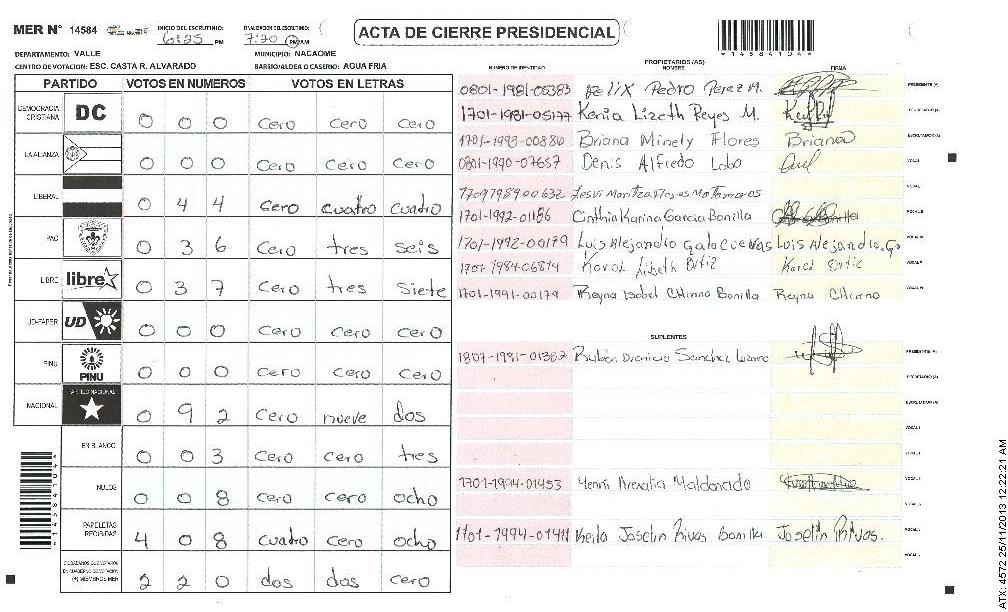 MER N° 14584 INICIO DEL ESCRUTINIO: 6:25 PM FINALIZACION DEL ESCRUTINIO: 7:20 PM AM
ACTA DE CIERRE PRESIDENCIAL
*1458410 4*
DEPARTAMENTO: VALLE MUNICIPIO: NACAOME
CENTRO DE VOTACION: ESC. CASTA R. ALVARADO BARRIO/ALDEA O CASERIO: AGUA FRIA
PARTIDO VOTOS EN NUMEROS VOTOS EN LETRAS
DEMOCRACIA CRISTIANA DC 0 0 0 Cero Cero Cero
LA ALIANZA 0 0 0 Cero Cero Cero
LIBERAL 0 4 4 Cero cuatro cuadro
PAC 0 3 6 Cero tres seis
LIBRE libre 0 3 7 Cero tres siete
UD-FAPER UD 0 0 0 Cero Cero Cero
PINU PINU 0 0 0 Cero Cero Cero
NACIONAL PARTIDO NACIONAL 0 9 2 Cero nueve dos
EN BLANCO 0 0 3 Cero Cero tres
NULOS 0 0 8 Cero cero ocho
PAPELETAS RECIBIDAS 4 0 8 cuatro cero ocho
CIUDADANOS QUE VOTARON EN CUADERNO DE VOTACION (+) MIEMBROS MER 2 2 0 dos dos cero
PROPIETARIOS (AS)
NUMERO DE IDENTIDAD NOMBRE FIRMA
0801-1981-05383 Pedro Perez M. PRESIDENTE (A)
1701-1981-05177 Kenia Lizeth Reyes M. SECRETARIO (A)
1701-1993-00880 Briana Minely Flores Briana ESCRUTADOR (A)
0801-1990-07657 Denis Alfredo Lobo VOCAL I
VOCAL II
1701-1992-01186 Cinthia Karina Garcia Bonilla VOCAL III
1701-1992-00179 Luis Alejandro Galo Cuevas Luis Alejandro G. VOCAL IV
1701-1984-06814 Karol Lizeth Ortiz Karol Ortiz VOCAL V
1701-1991-00179 Reyna Isabel Chirino Bonilla Reyna Chirino VOCAL VI
SUPLENTES
1807-1981-01362 Rubén Dionicio Sanchez Lozano PRESIDENTE (A)
SECRETARIO (A)
ESCRUTADOR (A)
VOCAL I
VOCAL II
1701-1994-01453 Yenni Maldonado VOCAL III
VOCAL IV
1701-1994-01411 Keila Joselin Rivas Bonilla Joselin Rivas. VOCAL V
VOCAL VI
ATX: 4572 25/11/2013 12:22:21 AM